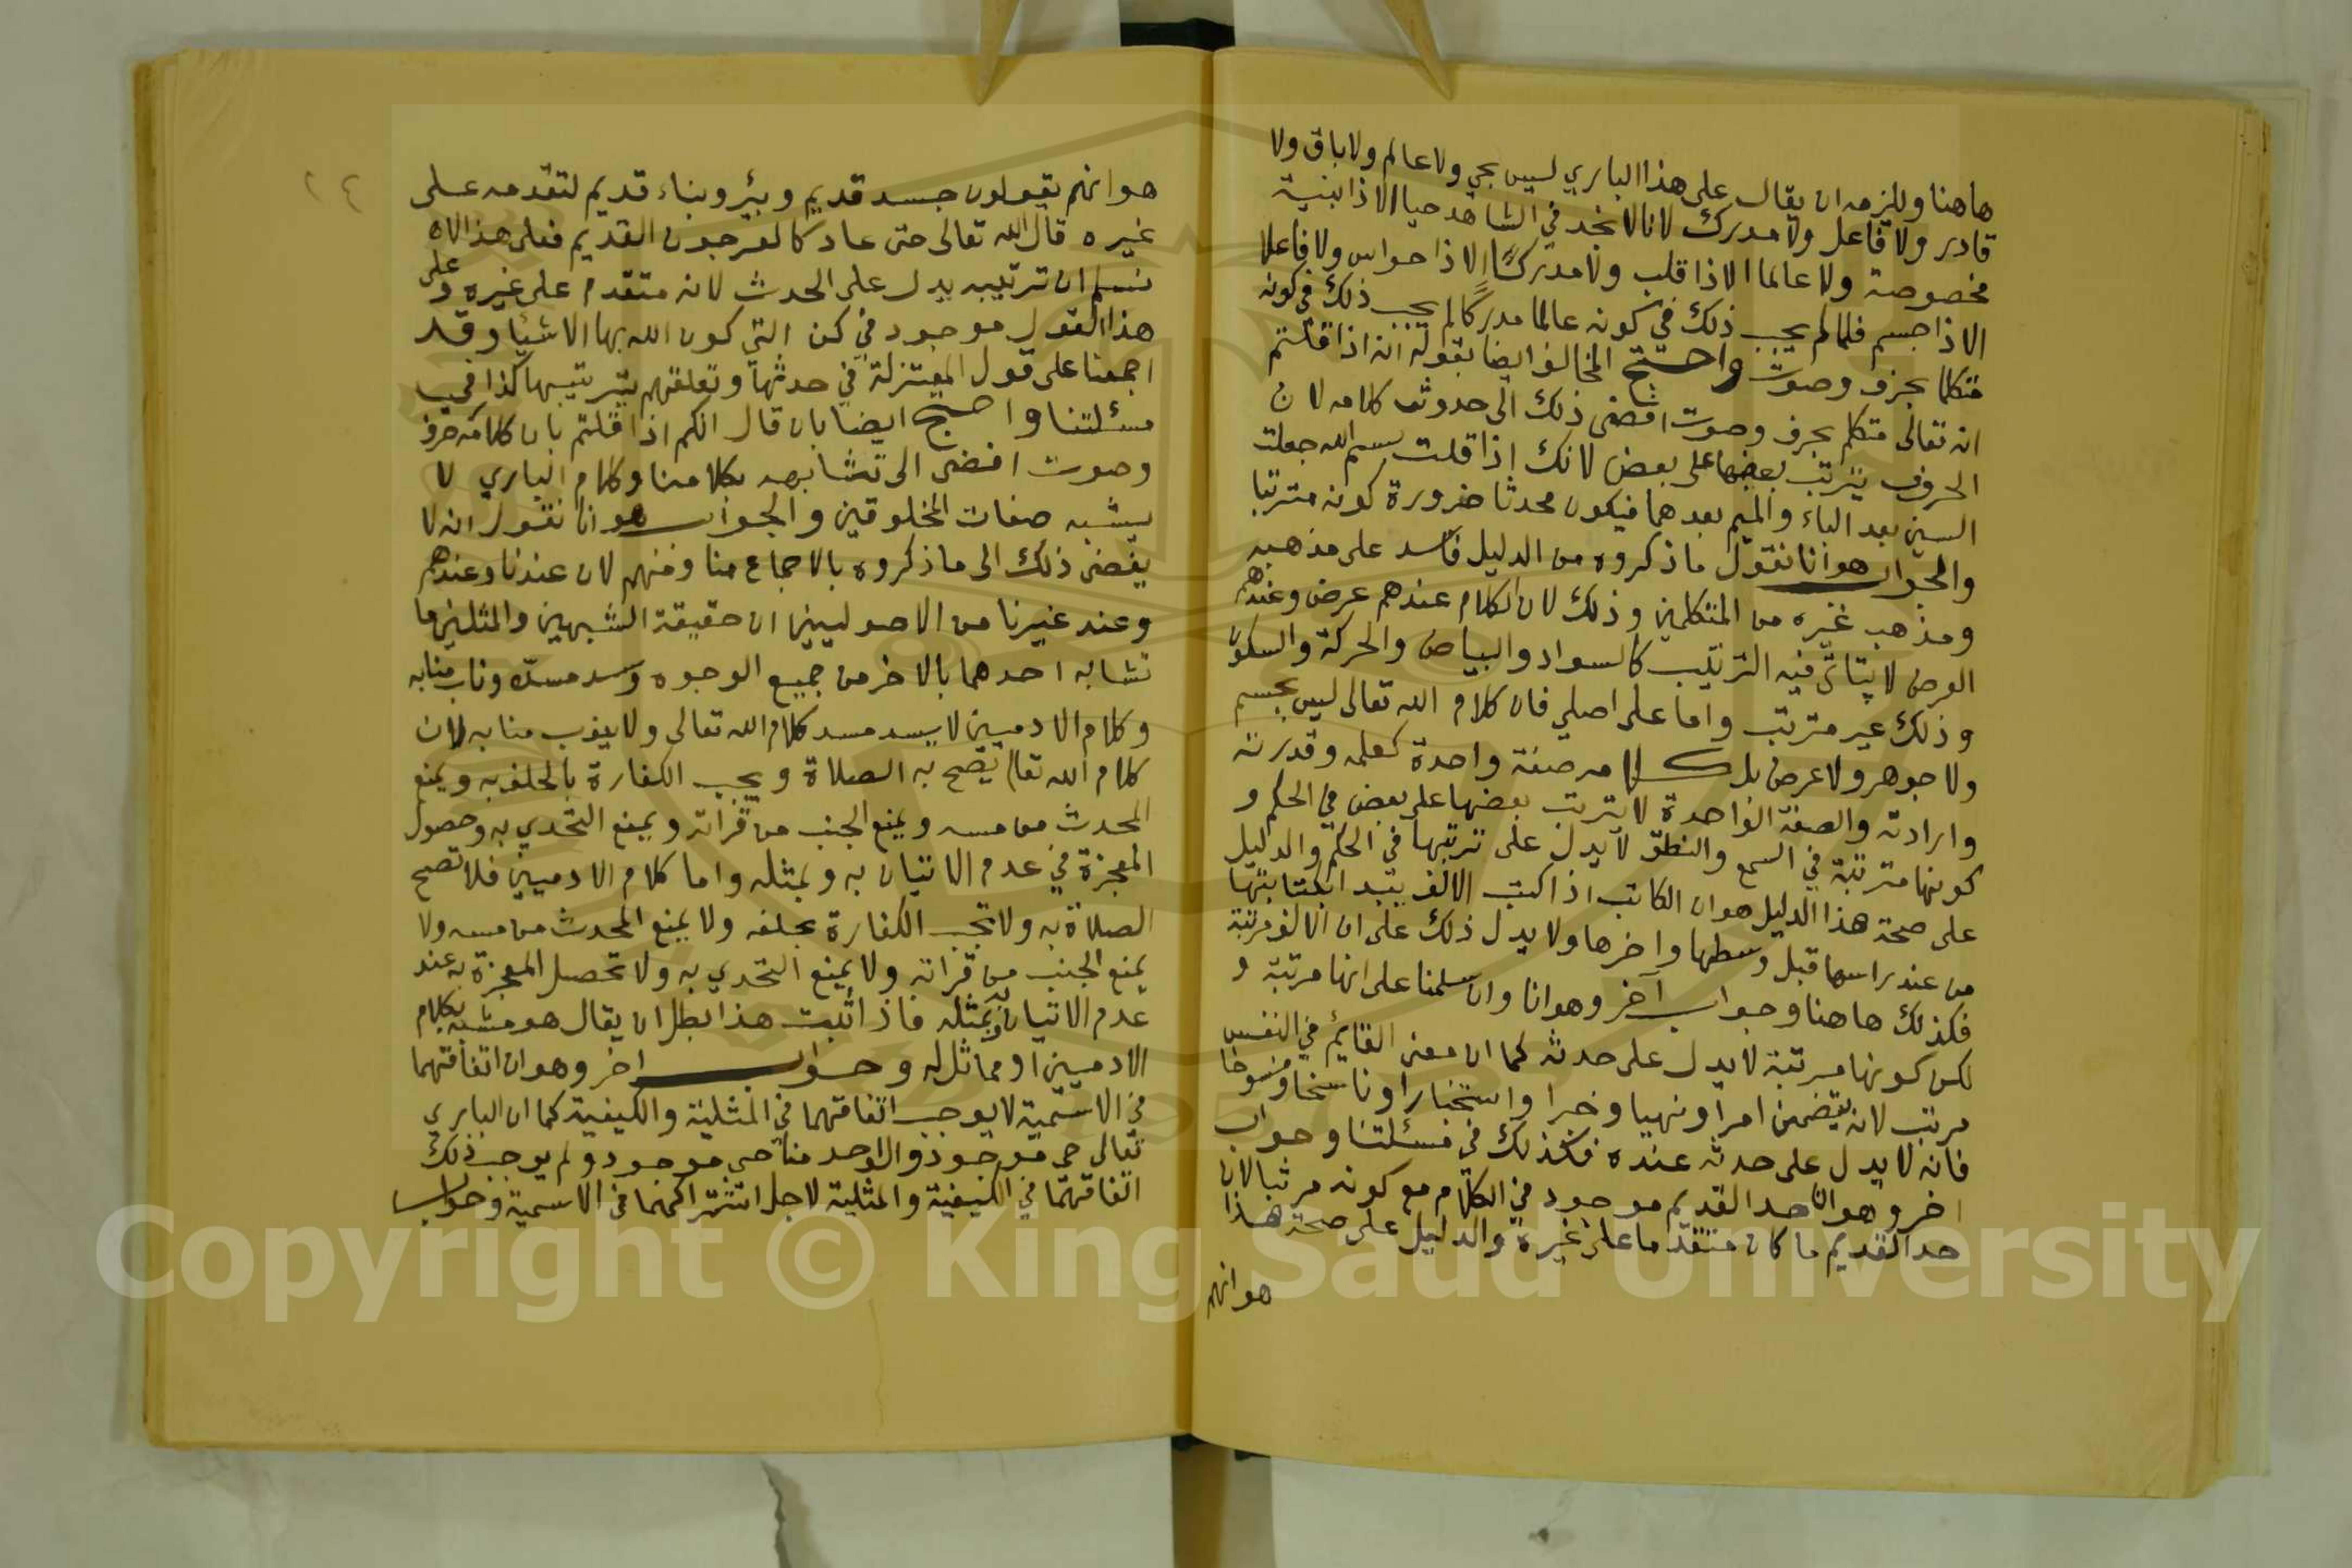 هاهنا ويلزمه ان يقال على هذا الباري ليس بحي ولا عالم ولا باق ولا
قادر ولا فاعل ولا مدرك لانا لا نجد في الشاهد حيا الا ذا بنية
مخصوصة ولا عالما الا ذا قلب ولا مدركًا الا ذا حواس ولا فاعلا
الا ذا جسم فلما لم يجب ذلك في كونه عالما مدركا لم يجب ذلك في كونه
متكلما بحرف وصوت واحتج المخالف ايضا بقوله انه اذا قلتم
انه تعالى متكلم بحرف وصوت افضى ذلك الى حدوث كلامه لان
الحروف يترتب بعضها على بعض لانك اذا قلت بسم الله جعلت
السين بعد الباء والميم بعدهما فيكون محدثا ضرورة كونه مترتبا
والجواب هو انا نقول ما ذكروه من الدليل فاسد على مذهبه
ومذهب غيره من المتكلمين وذلك لان الكلام عندهم عرض وعندهم
العرض لا يتاتى فيه الترتيب كالسواد والبياض والحركة والسكون
وذلك غير مترتب واما على اصلي فان كلام الله تعالى ليس بجسم
ولا جوهر ولا عرض بل كلامه صفة واحدة كعلمه وقدرته
وارادته والصفة الواحدة لا يترتب بعضها على بعض في الحكم و
كونها مترتبة في السمع والنطق لا يدل على ترتبها في الحكم والدليل
على صحة هذا الدليل هو ان الكاتب اذا كتب الالف يبتدا بكتابتها
من عند راسها قبل وسطها واخرها ولا يدل ذلك على ان الالف مرتبة
فكذلك هاهنا وجواب آخر وهو انا وان سلمنا على انها مرتبة و
لكن كونها مرتبة لا يدل على حدثه كما ان معنى القايم في النفس
مرتب لانه يتضمن امرا ونهيا وخبرا واستخبارا وناسخا ومنسوخا
فانه لا يدل على حدثه عنده فكذلك في مسئلتنا وجواب
اخر وهو ان حد القديم موجود في الكلام مع كونه مرتبا لان
حد القديم ما كان متقدما على غيره والدليل على صحة هذا
هو انهم
٢٤
هو انهم يقولون جسد قديم وبئر وبناء قديم لتقدمه على
غيره قال الله تعالى حتى عاد كالعرجون القديم فعلى هذا لا
نسلم ان ترتيبه يدل على الحدث لانه متقدم على غيره وعلى
هذا القول موجود في كن التي كون الله بها الاشيا وقد
اجمعنا على قول المعتزلة في حدثها وتعلقهم بترتيبها كذا في
مسئلتنا واحتج ايضا بان قال انكم اذا قلتم بان كلامه حرف
وصوت افضى الى تشابهه بكلامنا وكلام الباري لا
يشبه صفات المخلوقين والجواب هو انا نقول انه لا
يفضى ذلك الى ما ذكروه بالاجماع منا ومنهم لان عندنا وعندهم
وعند غيرنا من الاصوليين ان حقيقة الشبهين والمثلين ما
تشابه احدهما بالاخر من جميع الوجوه وسد مسدّه وناب منابه
وكلام الادميين لا يسد مسد كلام الله تعالى ولا ينوب منابه لان
كلام الله تعالى تصح به الصلاة ويجب الكفارة بالحلف به ويمنع
المحدث من مسه ويمنع الجنب من قراته ويمنع التحدي به وحصول
المعجزة في عدم الاتيان به وبمثله واما كلام الادميين فلا تصح
الصلاة به ولا تجب الكفارة بحلفه ولا يمنع المحدث من مسه ولا
يمنع الجنب من قراته ولا يمنع التحدي به ولا تحصل المعجزة به عند
عدم الاتيان به وبمثله فاذا ثبت هذا بطل ان يقال هو مشبه بكلام
الادميين او مماثل له وجواب اخر وهو ان اتفاقهما
في الاسمية لا يوجب اتفاقهما في المثلية والكيفية كما ان الباري
تعالى حي موجود والواحد منا حي موجود ولم يوجب ذلك
اتفاقهما في الكيفية والمثلية لاجل اشتراكهما في الاسمية وجواب
Copyright © King Saud University